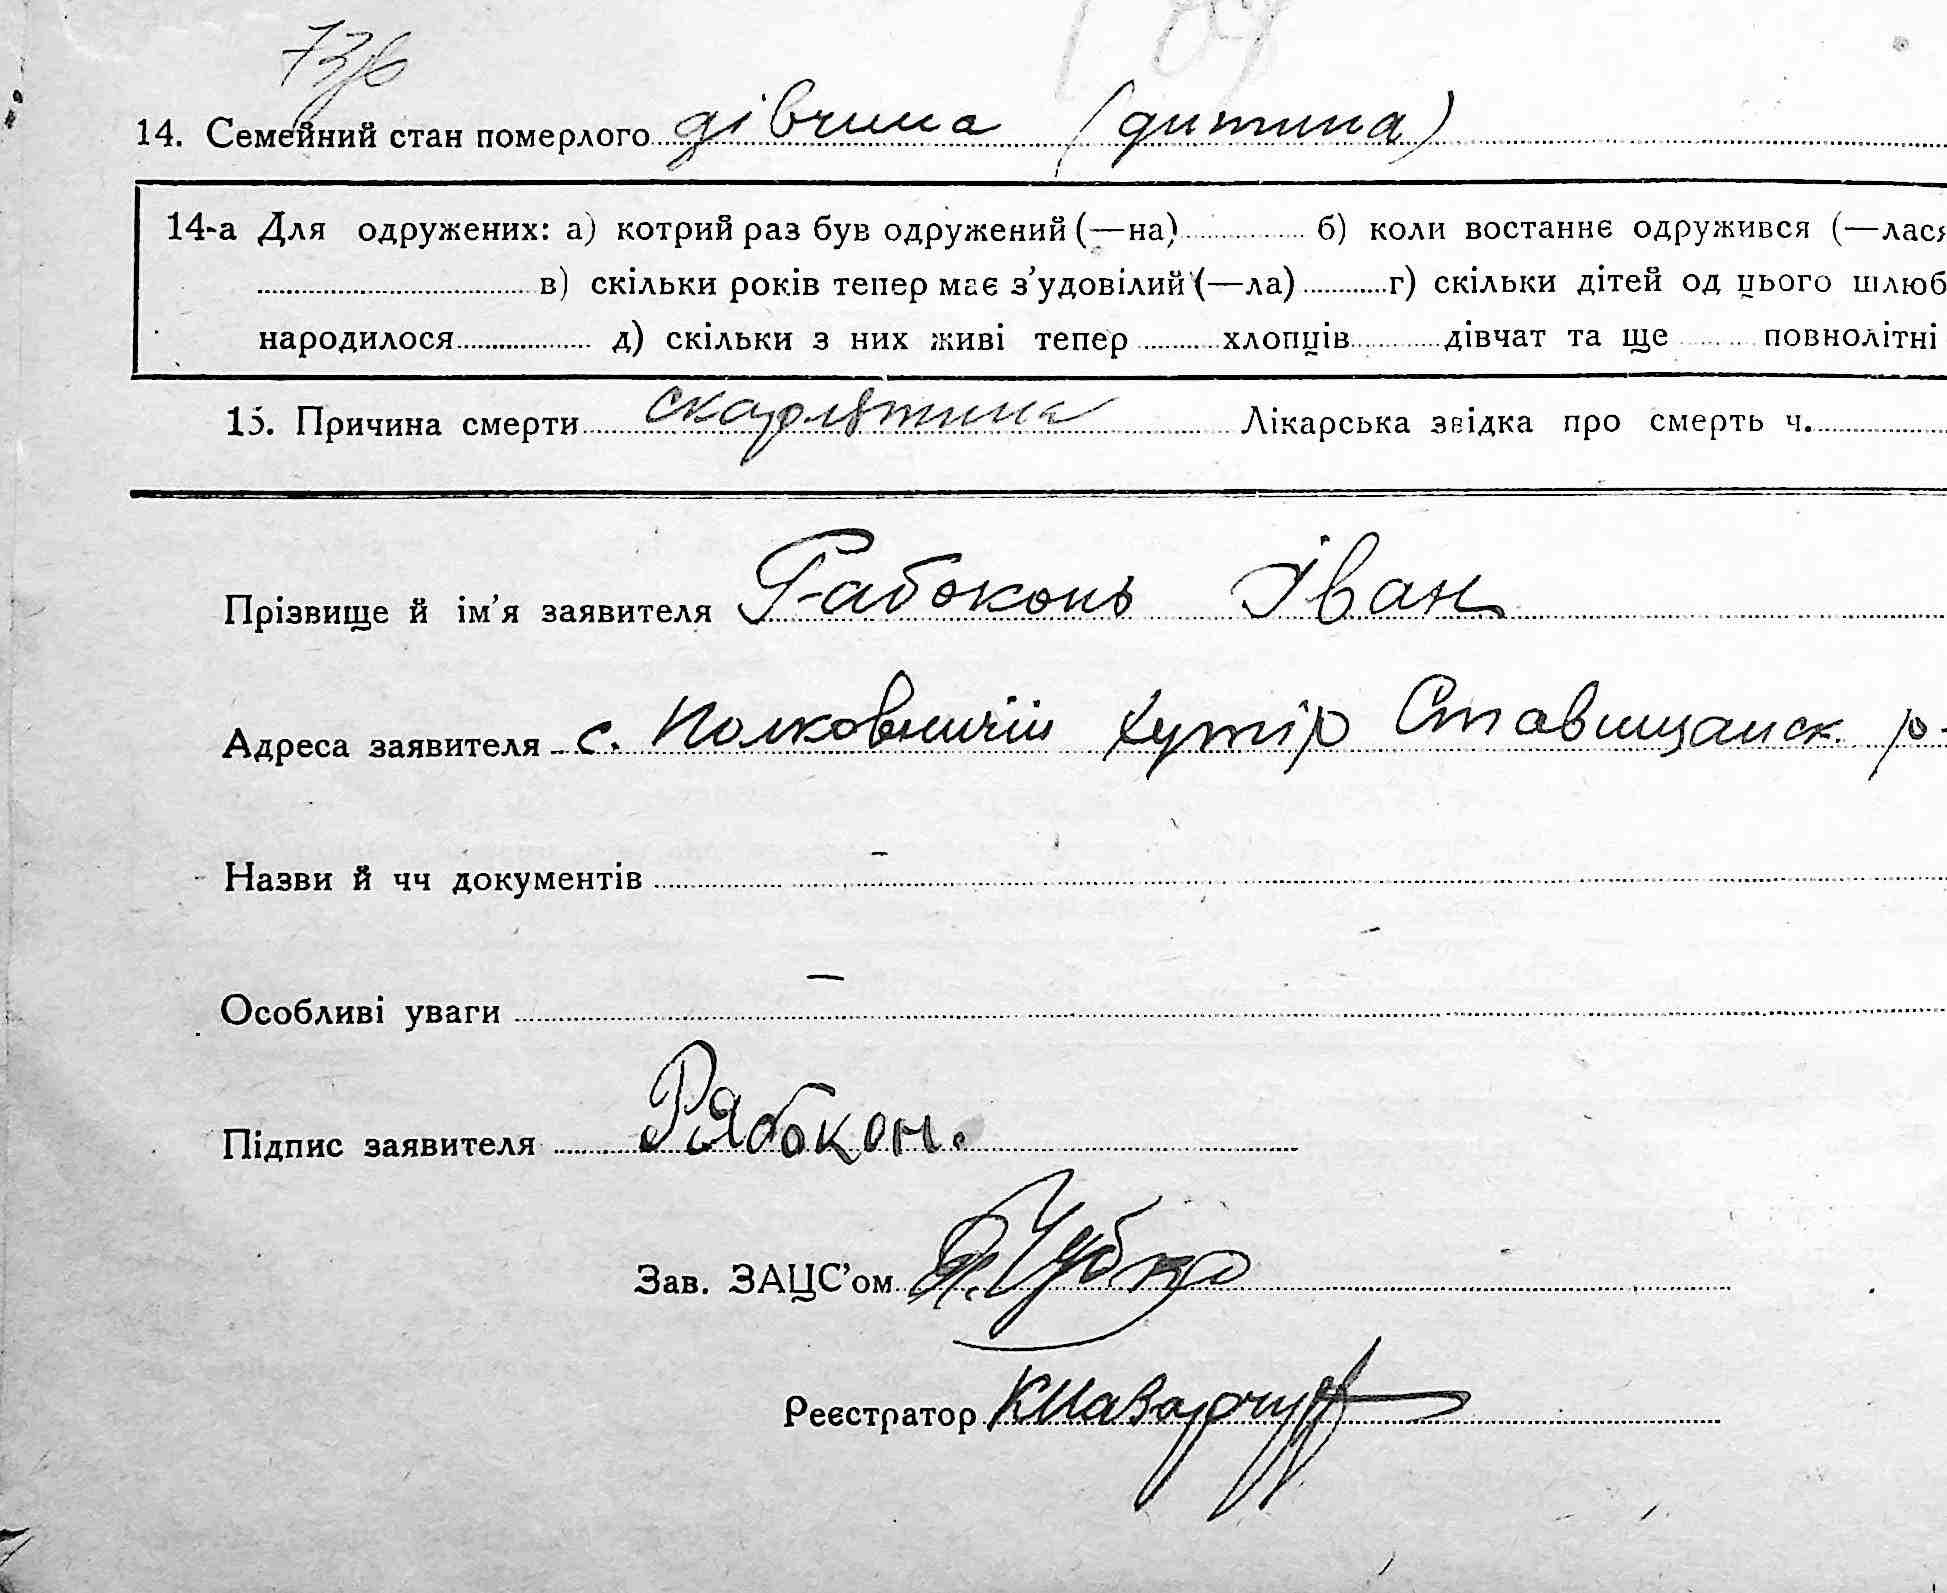 14. Семейний стан померлого дівчина (дитина)
14-а Для одружених: а) котрий раз був одружений (—на) б) коли востаннє одружився (—лася
в) скільки років тепер має з'удовілий (—ла) г) скільки дітей од цього шлюб
народилося д) скільки з них живі тепер хлопців дівчат та ще повнолітні
15. Причина смерти скарлятина Лікарська звідка про смерть ч.
Прізвище й ім'я заявителя Рабоконь Іван
Адреса заявителя с. Полковничій хутір Ставищанск р-
Назви й чч документів —
Особливі уваги —
Підпис заявителя Рябокон.
Зав. ЗАЦС'ом
Реєстратор